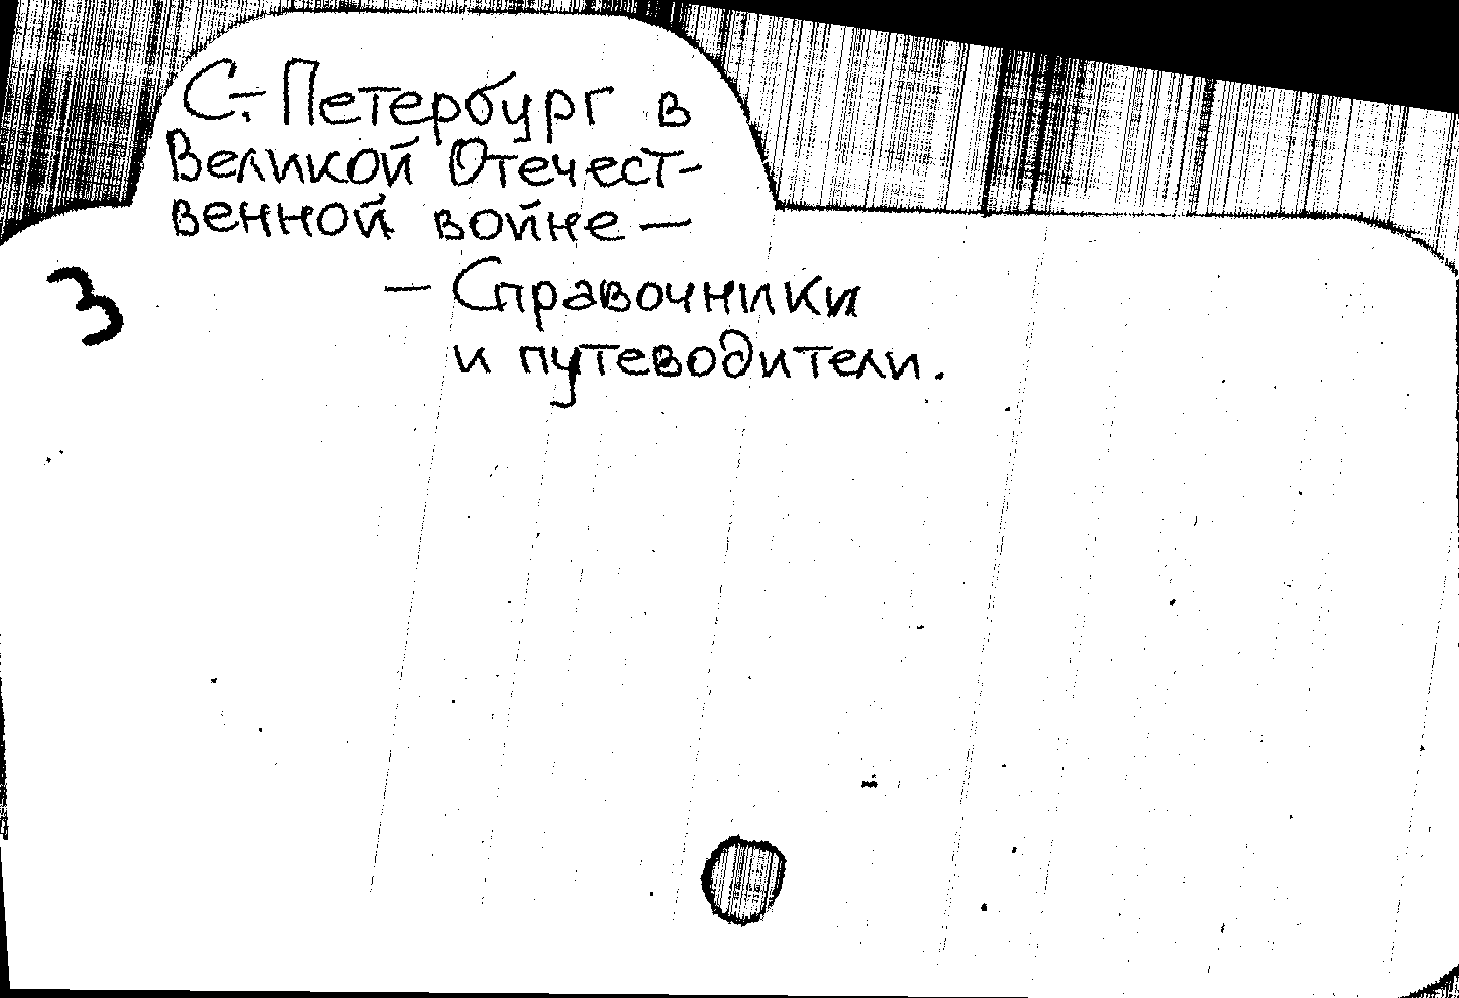 С.-Петербург в
Великой Отечест-
венной войне —
3
— Справочники
и путеводители.